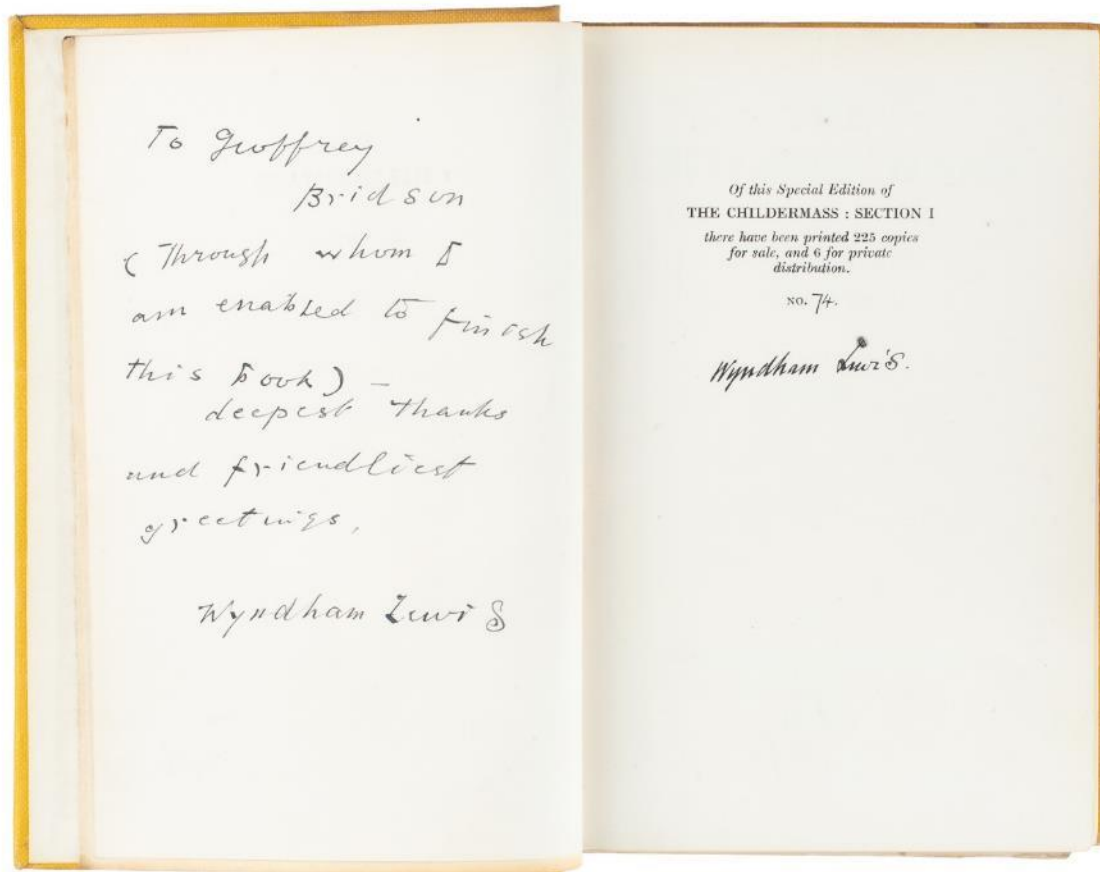 To Geoffrey
Bridson
(Through whom I
am enabled to finish
this book) –
deepest thanks
and friendliest
greetings,
Wyndham Lewis
Of this Special Edition of
THE CHILDERMASS : SECTION I
there have been printed 225 copies
for sale, and 6 for private
distribution.
NO. 74.
Wyndham Lewis.